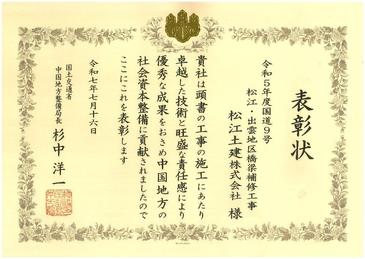 表彰状
令和5年度国道9号
松江・出雲地区橋梁補修工事
松江土建株式会社 様
貴社は頭書の工事の施工にあたり
卓越した技術と旺盛な責任感により
優秀な成果をおさめ中国地方の
社会資本整備に貢献されましたので
ここにこれを表彰します
令和七年七月十六日
国土交通省
中国地方整備局長 杉中洋一